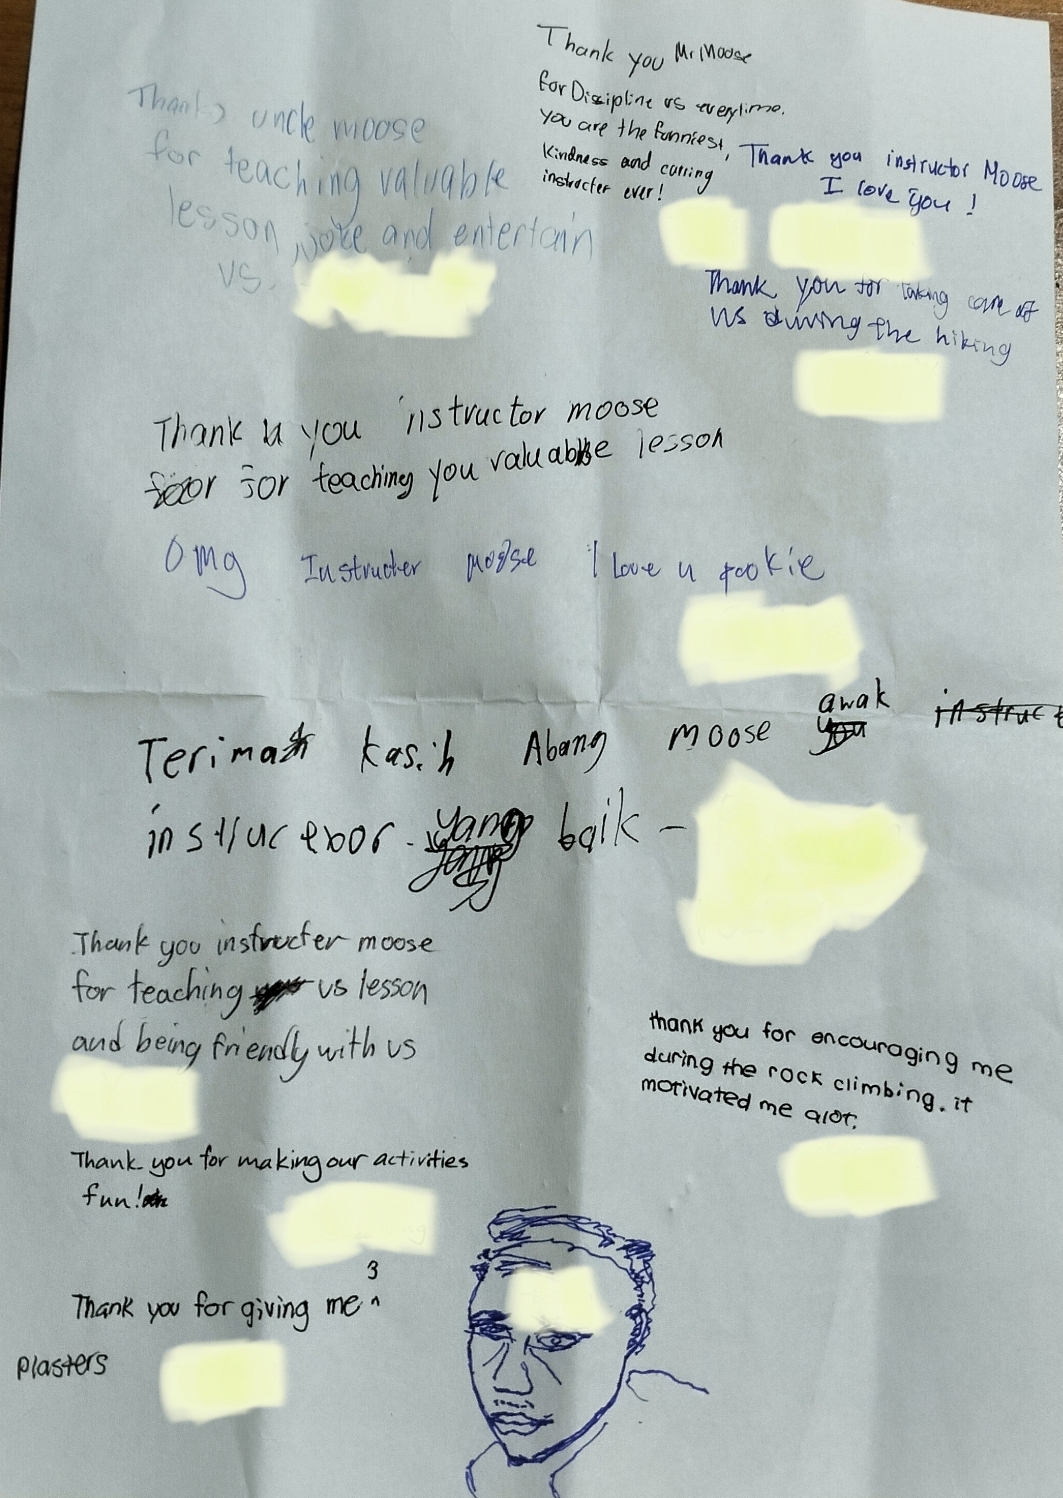 Thank you Mr Moose
for Discipline us everytime.
you are the funniest,
kindness and carring
instructer ever!
Thanks uncle moose
for teaching valuable
lesson, joke and entertain
us.
Thank you instructor Moose
I love you!
Thank you for taking care of
us during the hiking
Thank u you instructor moose
for for teaching you valuable lesson
Omg Instructer moose I Love u pookie
Terimah kasih Abang moose awak
you instruct
instructor yang baik -
Thank you instructer moose
for teaching us lesson
and being friendly with us
thank you for encouraging me
during the rock climbing. it
motivated me alot.
Thank you for making our activities
fun!
Thank you for giving me ^ 3
plasters